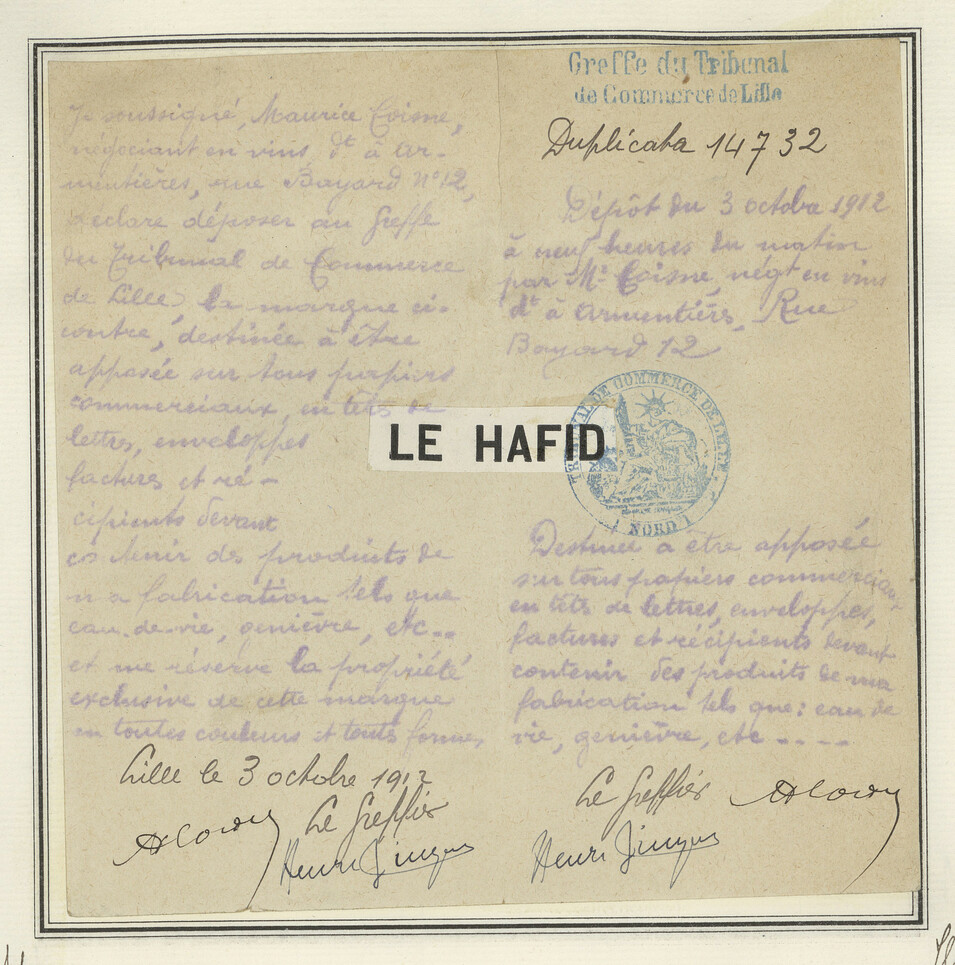 Je soussigné, Maurice Coisne,
négociant en vins dt à Ar-
mentières, rue Bayard N° 12,
déclare déposer au Greffe
du Tribunal de Commerce
de Lille, la marque ci-
contre, destinée à être
apposée sur tous papiers
commerciaux, en têts de
lettres, enveloppes
factures et ré-
cipients devant
contenir des produits de
ma fabrication tels que
eau-de-vie, genièvre, etc...
et me réserve la propriété
exclusive de cette marque
en toutes couleurs et toutes formes
Lille le 3 octobre 1912
Le Greffier
LE HAFID
Greffe du Tribunal
de Commerce de Lille
Duplicata 14732
Dépôt du 3 octobre 1912
à neuf heures du matin
par Mr Coisne, négt en vins
dt à Armentières, Rue
Bayard 12
TRIBUNAL DE COMMERCE DE LILLE
NORD
Destinée à être apposée
sur tous papiers commerciaux
en têts de lettres, enveloppes,
factures et récipients devant
contenir des produits de ma
fabrication tels que: eau de
vie, genièvre, etc ....
Le Greffier